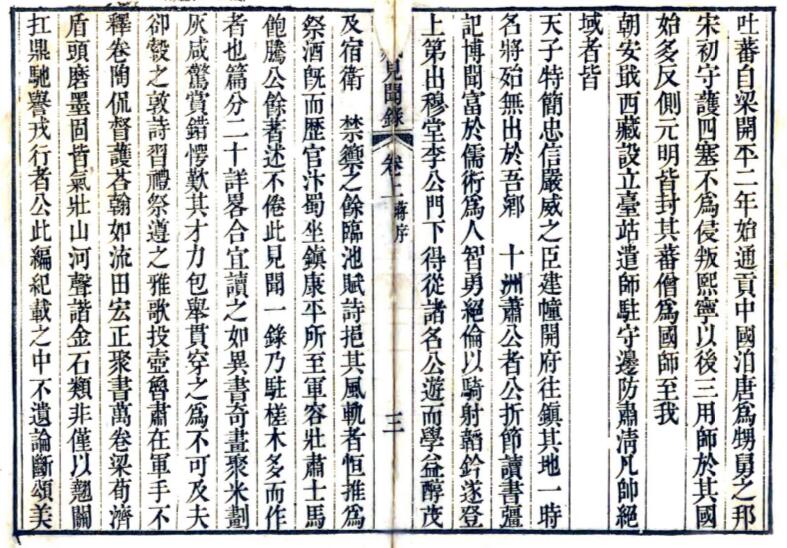 吐蕃自梁開平二年始通貢中國洎唐為甥舅之邦
宋初守護四塞不為侵叛熙寧以後三用師於其國
始多反側元明皆封其蕃僧為國師至我
朝安戢西藏設立臺站遣師駐守邊防肅清凡帥絕
域者皆
天子特簡忠信嚴威之臣建幢開府往鎮其地一時
名將始無出於吾鄉 十洲蕭公者公折節讀書彊
記博聞富於儒術為人智勇絕倫以騎射韜鈐遂登
上第出穆堂李公門下得從諸名公遊而學益醇茂
見聞錄 卷二 蔣序 三
及宿衛 禁籞之餘臨池賦詩挹其風軌者恒推為
祭酒旣而歷官汴蜀坐鎮康平所至軍容壯肅士馬
飽騰公餘著述不倦此見聞一錄乃駐槎木多而作
者也篇分二十詳畧合宜讀之如異書奇畫聚米劃
灰咸驚賞錯愕歎其才力包舉貫穿之為不可及夫
卻縠之敦詩習禮祭遵之雅歌投壺魯肅在軍手不
釋卷陶侃督護荅翰如流田宏正聚書萬卷梁荀濟
盾頭磨墨固皆氣壯山河聲諧金石類非僅以翹關
扛鼎馳譽戎行者公此編紀載之中不遺論斷頌美